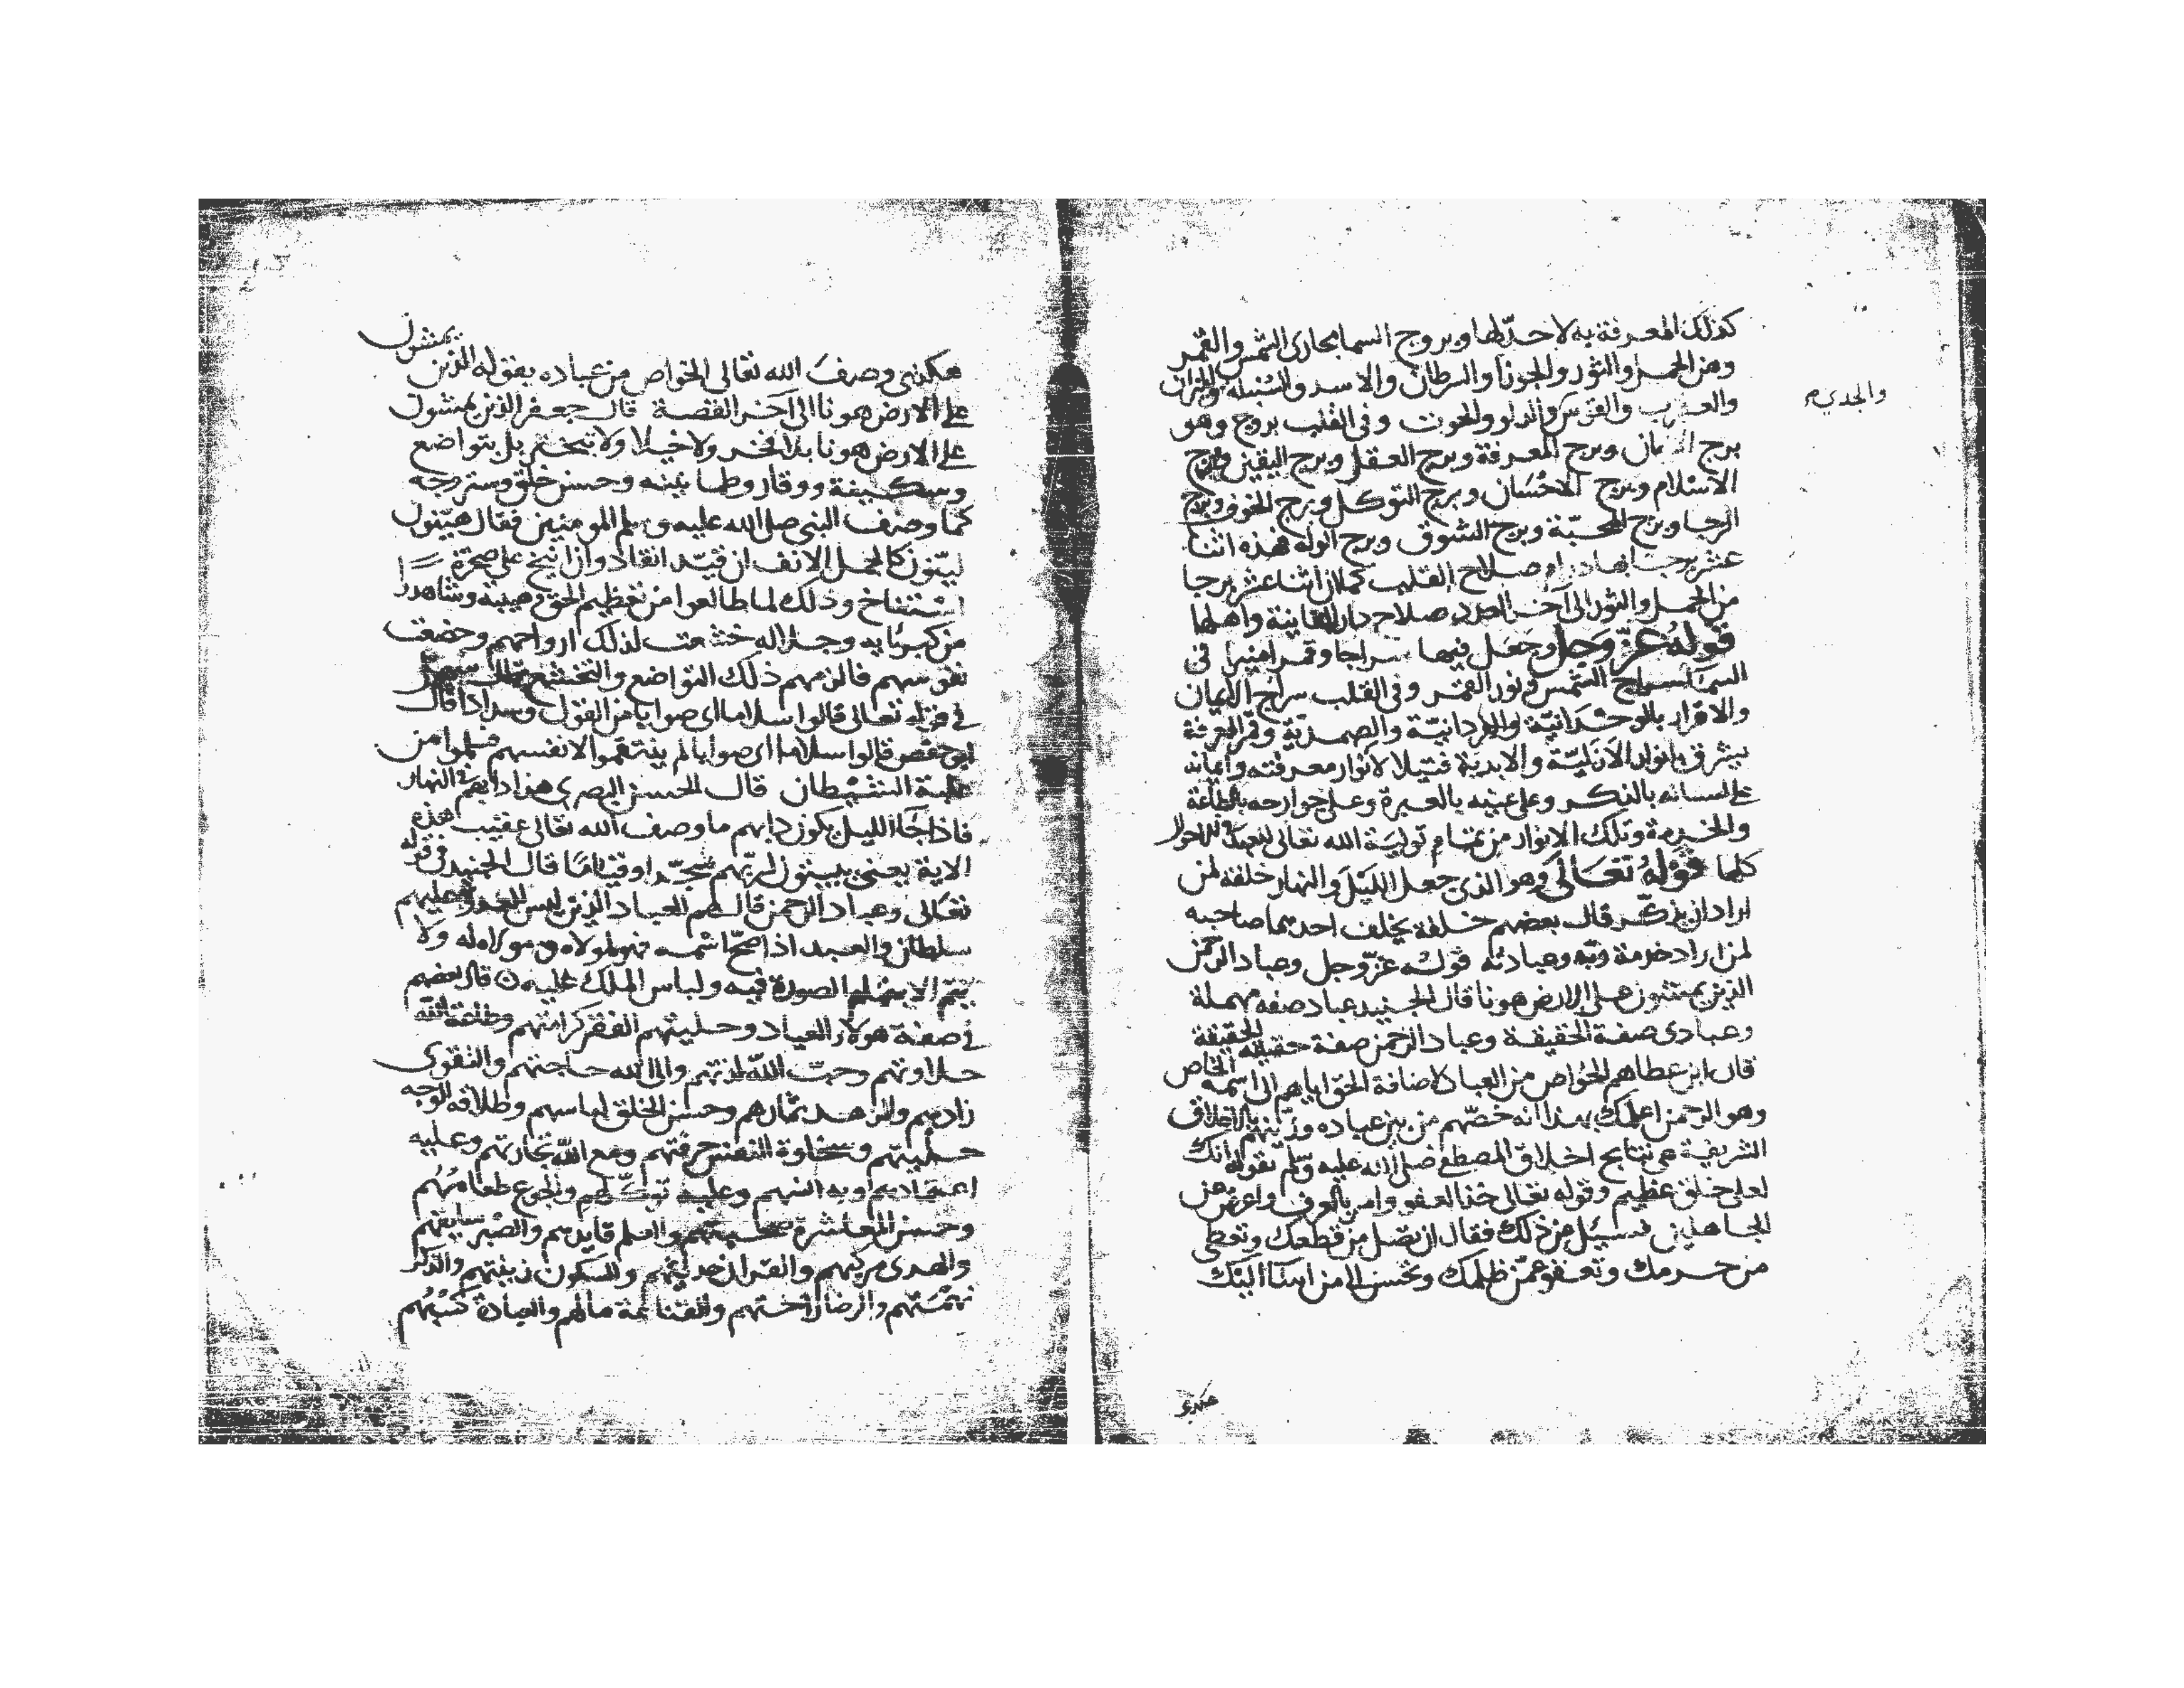 كذلك المعرفة به لا حد لها وبروج السما مجارى الشمس والقمر
وهن الحمل والثور والجوزا والسرطان والاسد والسنبله والميزان
والجدي
والعقرب والقوس والدلو والحوت وفى القلب بروج وهو
برج الايمان وبرج المعرفة وبرج العقل وبرج اليقين وبرج
الاسلام وبرج الاحسان وبرج التوكل وبرج الخوف وبرج
الرجا وبرج المحبّة وبرج الشوق وبرج الوله هذه اثنا
عشر برجا بها دوام صلاح القلب كما ان اثنا عشر برجا
من الحمل والثور الى اخر العدد صلاح دار الفانية واهلها
قوله عزّ وجل وجعل فيها سراجا وقمرا منيرا فى
السمآ سراج الشمس ونور القمر وفى القلب سراج الايمان
والاقرار بالوحدانيّة والفردانيّة والصمديّة وقمر المعرفة
يشرق بانوار الازليّة والابدية فتيلا لانوار معرفته وايمانه
على لسانه بالذكر وعلى عينيه بالعبرة وعلى جوارحه بالطاعة
والخدمة وتلك الانوار من تمام تولية الله تعالى لعبده
كلها قوله تعالى وهو الذى جعل الليل والنهار خلفة لمن
اراد ان يذكّر قال بعضهم خلفة يخلف احدهما صاحبه
لمن اراد خدمة ربّه وعبادته قوله عزّ وجل وعباد الرحمن
الذين يمشون على الارض هونا قال الجنيد عباد صفه مهملة
وعبادى صفة الحقيقة وعباد الرحمن صفة حقيقة الحقيقة
قال ابن عطا هم الخواص من العباد لاضافة الحق اياهم الى اسمه الخاص
وهو الرحمن اعلمك بهذا انه خصّهم من بين عباده وزيّنهم بالاخلاق
الشريفة هى نتايج اخلاق المصطفى صلى الله عليه وسلّم بقوله انك
لعلى خلق عظيم وقوله تعالى خذ العفو وامر بالعرف واعرض عن
الجاهلين فسئيل من ذلك فقال ان تصل من قطعك وتعطى
من حرمك وتعفو عمّن ظلمك وتحسن الى من اسآ اليك
هكذى
هكذى وصف الله تعالى الخواص من عباده بقوله الذين يمشون
على الارض هونا الى اخر القصة قال جعفر الذين يمشون
على الارض هونا بلا فخر ولا خيلا ولا تبختر بل بتواضع
وسكينة ووقار وطمانينه وحسن خلق
كما وصف النبى صلى الله عليه وسلم المومنين فقال هيّنون
ليّنون كالجمل الانف ان قيّد انقاد وان انيخ على صخرة
استناخ وذلك لما طالعوا من تعظيم الحق وهيبته وشاهدوا
من كبريايه وجلاله خشعت لذلك ارواحهم وخضعت
نفوسهم فالزمهم ذلك التواضع والتخشع
فى قوله تعالى قالوا سلاما اى صوابا من القول وسدادا قال
ابو حفص قالوا سلاما اى صوابا لم ينتقموا لانفسهم فسلموا من
غلبة الشيطان قال الحسن البصرى هذا دابهم فى النهار
فاذا جآ الليل يكون دابهم ما وصف الله تعالى عقيب هذه
الاية يعنى يبيتون لربّهم سجّدا وقياما قال الجنيد فى قوله
تعالى وعباد الرحمن قال هم العباد الذين ليس للعدو عليهم
سلطان والعبد اذا صحّ اسمه فهو لمولاه ومولاه له ولا
يتم الاسم الصورة فيه ولباس الملك عليه ن قال بعضهم
فى صفة هولاء العباد وحليتهم الفقر كرامتهم وطاعة الله
حلاوتهم وحبّ الله لذتهم والى الله حاجتهم والتقوى
زادهم والزهد ثمارهم وحسن الخلق لباسهم وطلاقة الوجه
حليتهم وسخاوة النفس حرفتهم ومع الله تجارتهم وعليه
اعتمادهم وبه انسهم وعليه توكّلهم والجوع طعامهم
وحسن المعاشرة صحبتهم والعلم قايدهم والصّبر سايقهم
والهدى مركبهم والقران حديثهم والسكون زينتهم والذكر
نهمتهم والرضا راحتهم والقناعة مالهم والعبادة كسبهم